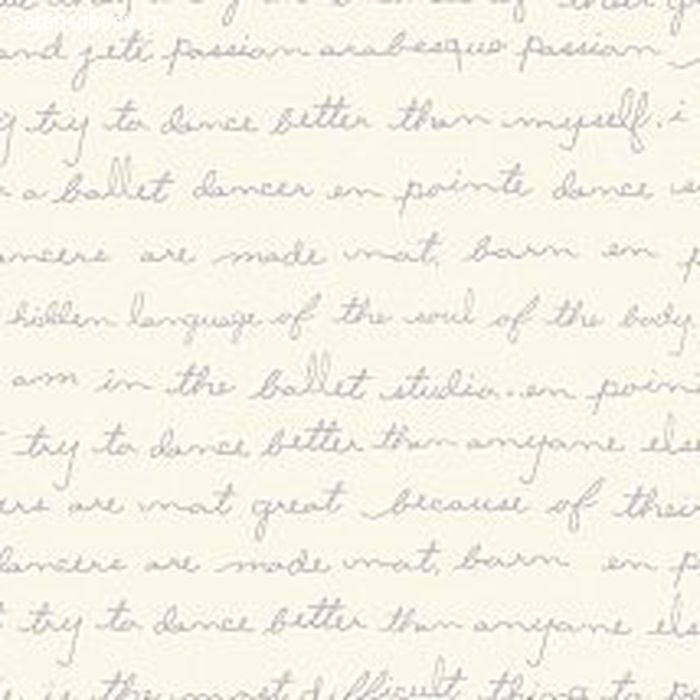 and jeté passion arabesque passion
try to dance better than myself. i
a ballet dancer en pointe dance
ancers are made not born en p
hidden language of the soul of the body
am in the ballet studio..en poin
try to dance better than anyone else
ers are not great because of their
dancers are made not born en p
try to dance better than anyone els
is the most difficult thing to